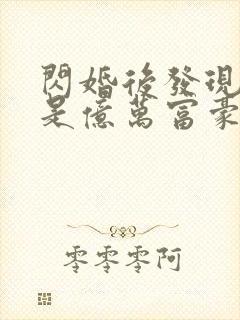 閃婚後發現
是億萬富豪
零零零阿